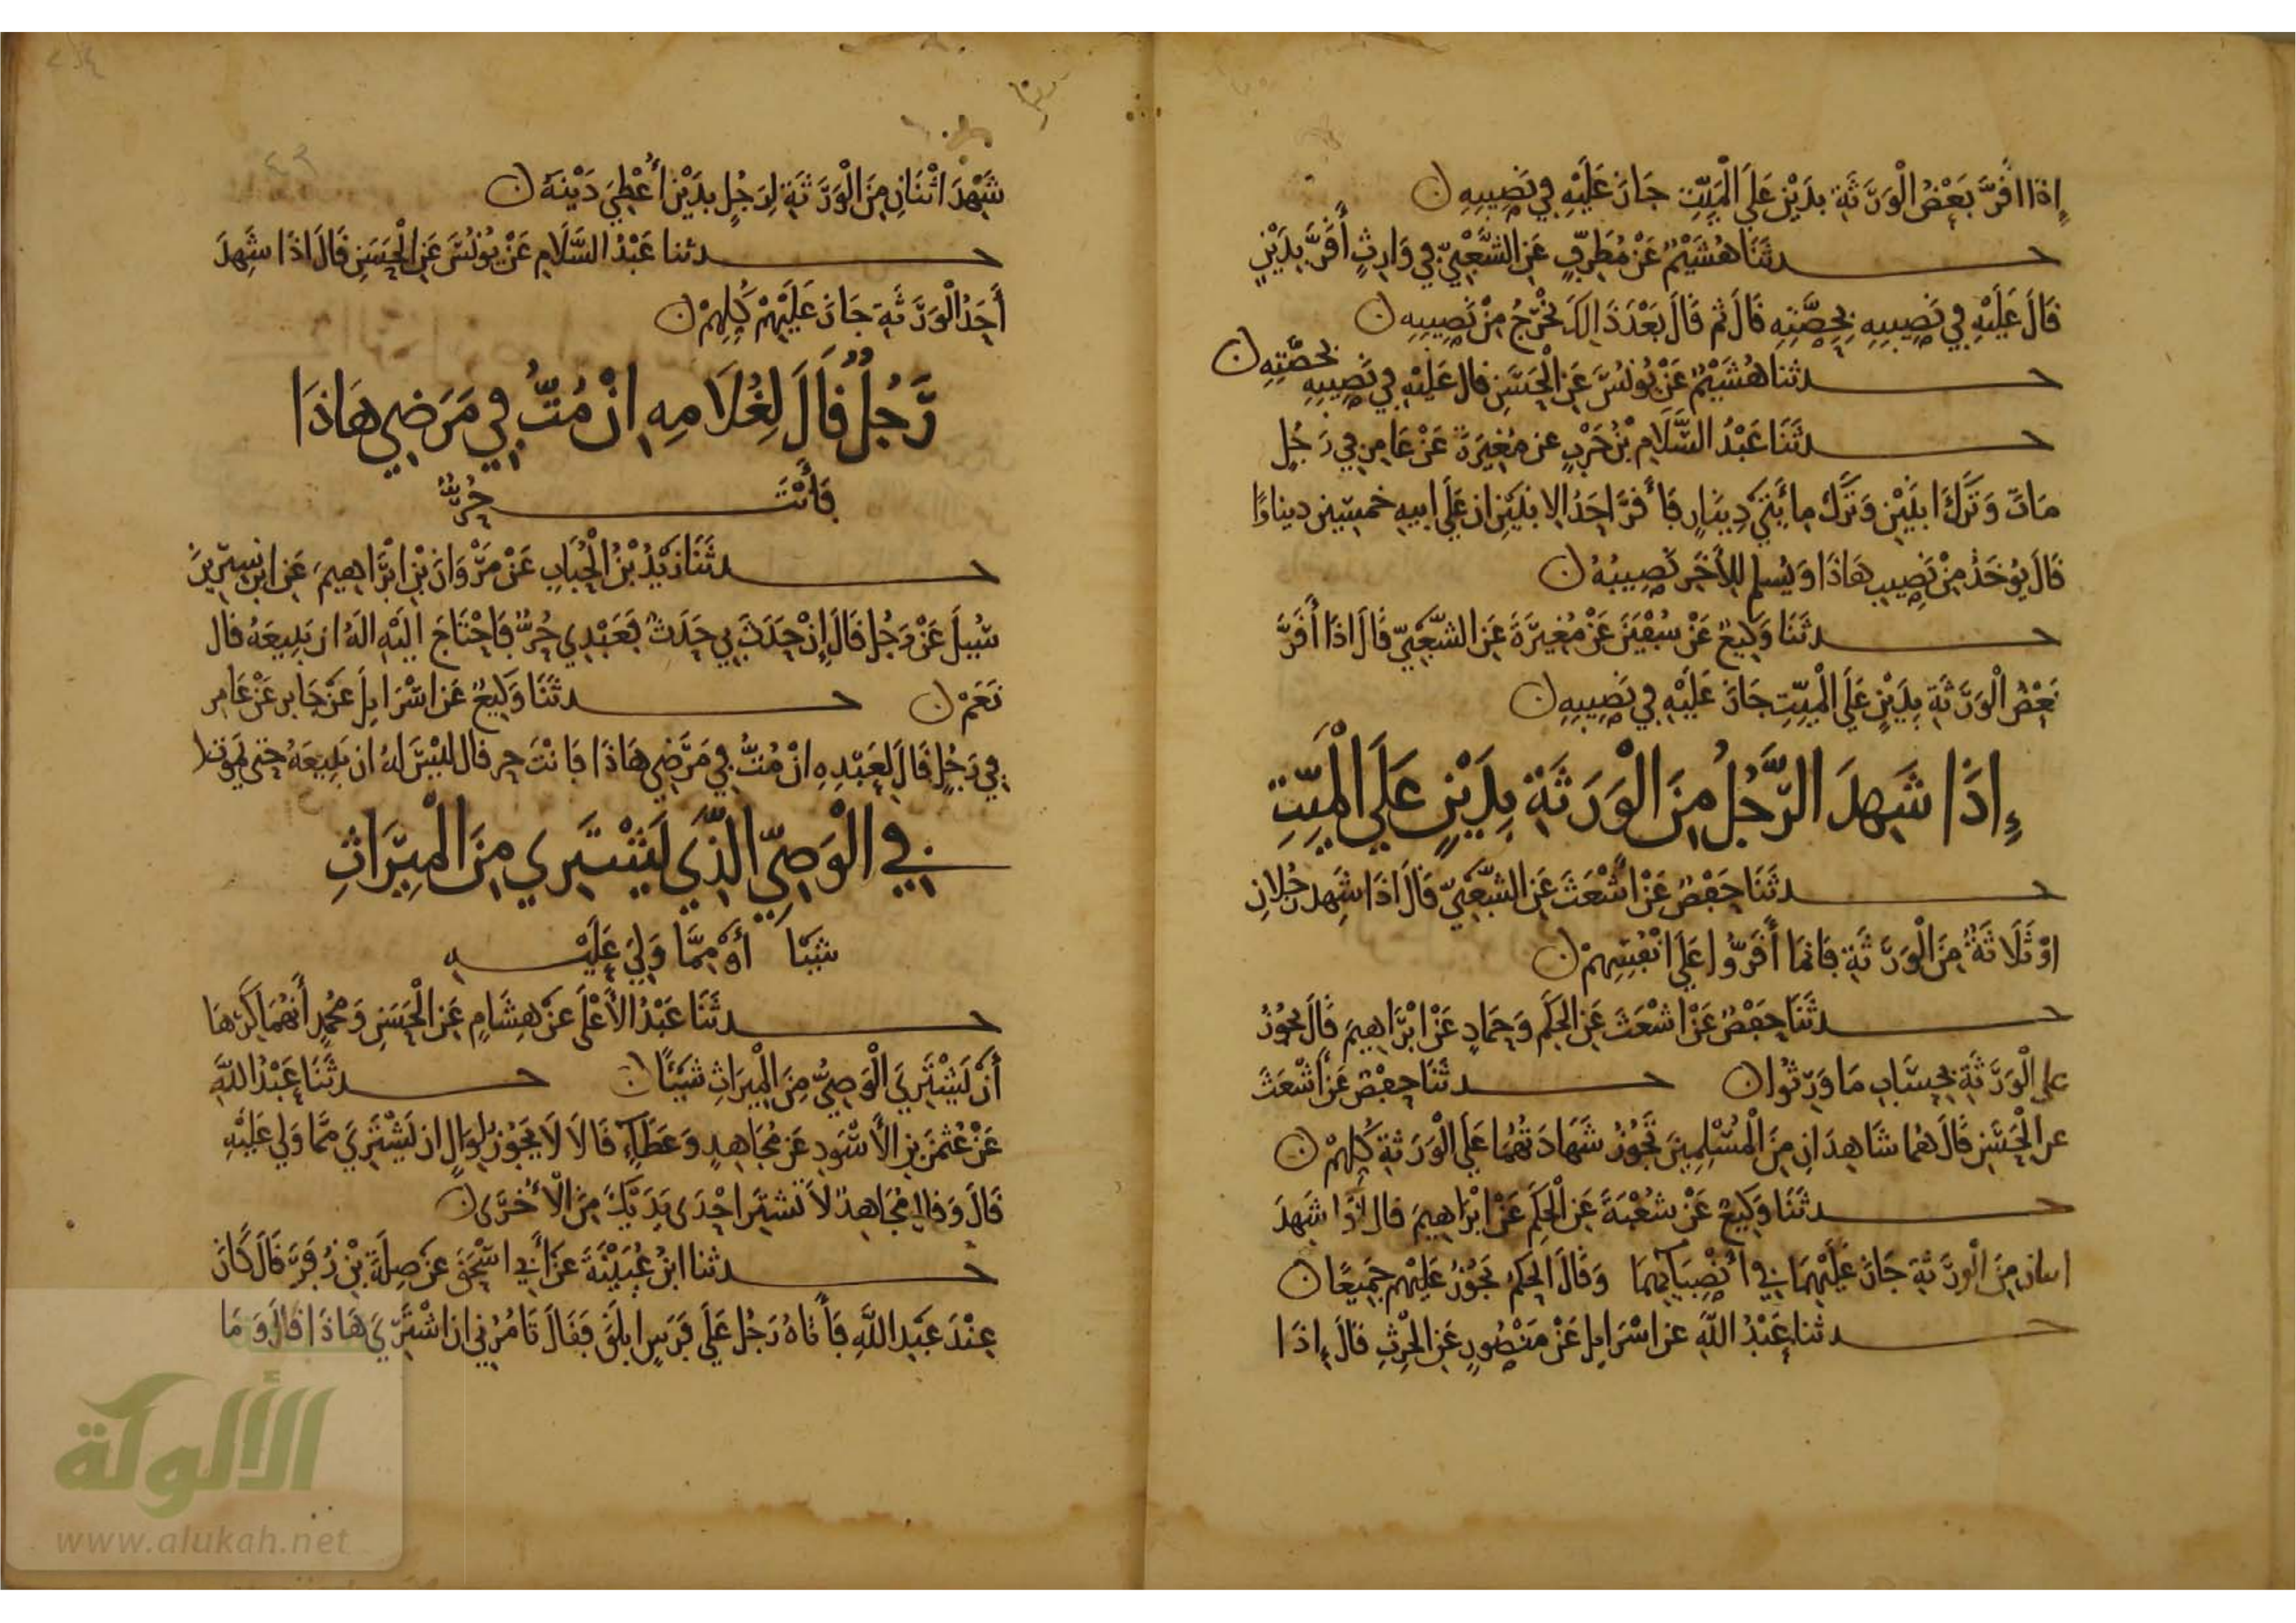 إِذَا اقَرَّ بَعْضُ الْوَرَثَةِ بِدَيْنٍ عَلَى الْمَيِّتِ جَازَ عَلَيْهِ فِي نَصِيبِهِ ن
حدثَنَا هُشَيْمٌ عَنْ مُطَرِّفٍ عَنِ الشَّعْبِيِّ فِي وَارِثٍ أَقَرَّ بِدَيْنٍ
قَالَ عَلَيْهِ فِي نَصِيبِهِ بِحِصَّتِهِ قَالَ ثم قَالَ بَعْدَ ذَالِكَ يُخْرَجُ مِنْ نَصِيبِهِ ن
حدثنا هُشَيْمٌ عَنْ يُونُسَ عَنِ الْحَسَنِ قال عَلَيْهِ فِي نَصِيبِهِ بحصَّتِهِ ن
حدثَنَا عَبْدُ السَّلَامِ بْنُ حَرْبٍ عن مُغِيرَةَ عَنْ عَامِرٍ فِي رَجُلٍ
مَاتَ وَتَرَكَ ابنَيْنِ وَتَرَكَ مِائَتَي دِينَارٍ فَأَقَرَّ احَدُ الابنَيْنِ ان عَلَى ابيهِ خمسِين دينارًا
قَالَ يُوخَذُ مِنْ نَصِيبِ هَاذَا وَيُسلم لِلآخَرِ نَصِيبُهُ ن
حدثَنَا وَكِيعٌ عَنْ سُفْيَنَ عَنْ مُغِيرَةَ عَنِ الشَّعْبِيِّ قَالَ اذَا أَقَرَّ
بَعْضُ الْوَرَثَةِ بِدَيْنٍ عَلَى الْمَيِّتِ جَازَ عَلَيْهِ فِي نَصِيبِهِ ن
إِذَا شَهِدَ الرَّجُلُ مِنَ الْوَرَثَةِ بِدَيْنٍ عَلَى الْمَيِّتِ
حدثَنَا حَفْصٌ عَنْ أَشْعَثَ عَنِ الشَّعْبِيِّ قَالَ اذَا شَهِدَ رَجُلانِ
اوْ ثَلَاثَةٌ مِنَ الْوَرَثَةِ فَانما أَقَرُّوا عَلَى انْفُسِهِمْ ن
حدثَنَا حَفْصٌ عَنْ اشْعَثَ عَنِ الْحَكَمِ وَحَمادٍ عَنْ ابْرَاهِيمَ قَالَ يَجُوزُ
على الْوَرَثَةِ بِحِسَابِ مَا وَرِثُوا ن حدثَنَا حَفْصٌ عَنْ أَشْعَثَ
عن الْحَسَنِ قَالَ هُما شَاهِدَانِ مِنَ الْمُسْلِمِينَ تَجُوزُ شَهَادَتُهُمَا عَلَى الْوَرَثَةِ كُلِّهِمْ ن
حدثَنَا وَكِيعٌ عَنْ شُعْبَةَ عَنِ الْحَكَمِ عَنْ ابْرَاهِيمَ قال اذَا شَهِدَ
اثنان مِنَ الْوَرَثَةِ جَازَ عَلَيْهِمَا فِي أَنْصِبَائِهِمَا وَقَالَ الْحَكَمُ يَجُوزُ عَلَيْهِم جَمِيعًا ن
حدثنا عَبْدُ اللَّهِ عن اسْرَايِل عَنْ مَنْصُورٍ عَنِ الْحَرِثِ قَالَ إِذَا
شَهِدَ اثْنَانِ مِنَ الْوَرَثَةِ لِرَجُلٍ بِدَيْنٍ أُعْطِيَ دَيْنَهُ ن
حدثنا عَبْدُ السَّلَامِ عَنْ يُونُسَ عَنِ الْحَسَنِ قَالَ اذَا شَهِدَ
أَحَدُ الْوَرَثَةِ جَازَ عَلَيْهِمْ كُلِّهِمْ ن
رَجُلٌ قَالَ لِغُلَامِهِ انْ مُتُّ فِي مَرَضِي هَاذَا
فَأَنْتَ حُرٌّ
حدثَنَا زَيْدُ بْنُ الْحُبَابِ عَنْ مَرْوَانَ بْنِ ابْرَاهِيمَ عَنِ ابْنِ سِيرِينَ
سُيِلَ عَنْ رَجُلٍ قَالَ إِنْ حَدَثَ بِي حَدَثٌ فَعَبْدِي حُرٌّ فَاحْتَاجَ الَيْهِ الَهُ ان يَبِيعَهُ قال
نَعَمْ ن حدثَنَا وَكِيعٌ عَن اسْرَايِلَ عَنْ جَابِرٍ عَنْ عَامِرٍ
فِي رَجُلٍ قَالَ لِعَبْدِهِ انْ مُتُّ فِي مَرَضِي هَاذَا فَانْتَ حر قال لَيْسَ لهُ ان يَبِيعَهُ حَتى يَمُوتَ ن
فِي الْوَصِيِّ الَّذِي يَشْتَرِي مِنَ الْمِيرَاثِ
شَيْئا أَوْ مِمَّا وَلِيَ عَلَيْهِ
حدثَنَا عَبْدُ الأَعْلَى عَنْ هِشَامٍ عَنِ الْحَسَنِ وَمُحَمدٍ أَنهُمَا كَرِهَا
أَنْ يَشْتَرِيَ الْوَصِيُّ مِنَ الْمِيرَاثِ شَيْئًا ن حدثَنَا عَبْدُ اللَّهِ
عَنْ عُثمَنَ بنِ الأَسْوَدِ عَن مُجَاهِدٍ وَعَطَاءٍ قَالَا لَا يَجُوزُ لِوَالٍ ان يَشْتَرِيَ مِمَّا وَلِي عَلَيْهِ
قَالَ وَقال مُجَاهِدٌ لَا تَشْتَرِ احْدَى يَدَيْكَ مِنَ الْأُخْرَى ن
حدثنا ابْنُ عُيَيْنَةَ عَنْ أَبِي اسْحَقَ عَنْ صِلَةَ بْنِ زُفَرَ قَالَ كَانَ
عِنْدَ عَبْدِ اللَّهِ فَأَتَاهُ رَجُل عَلَى فَرَسٍ ابلَقَ فَقَالَ تَامُرُنِي ان اشْتَرِيَ هَاذَا قَالَ وَمَا
الألوكة
www.alukah.net